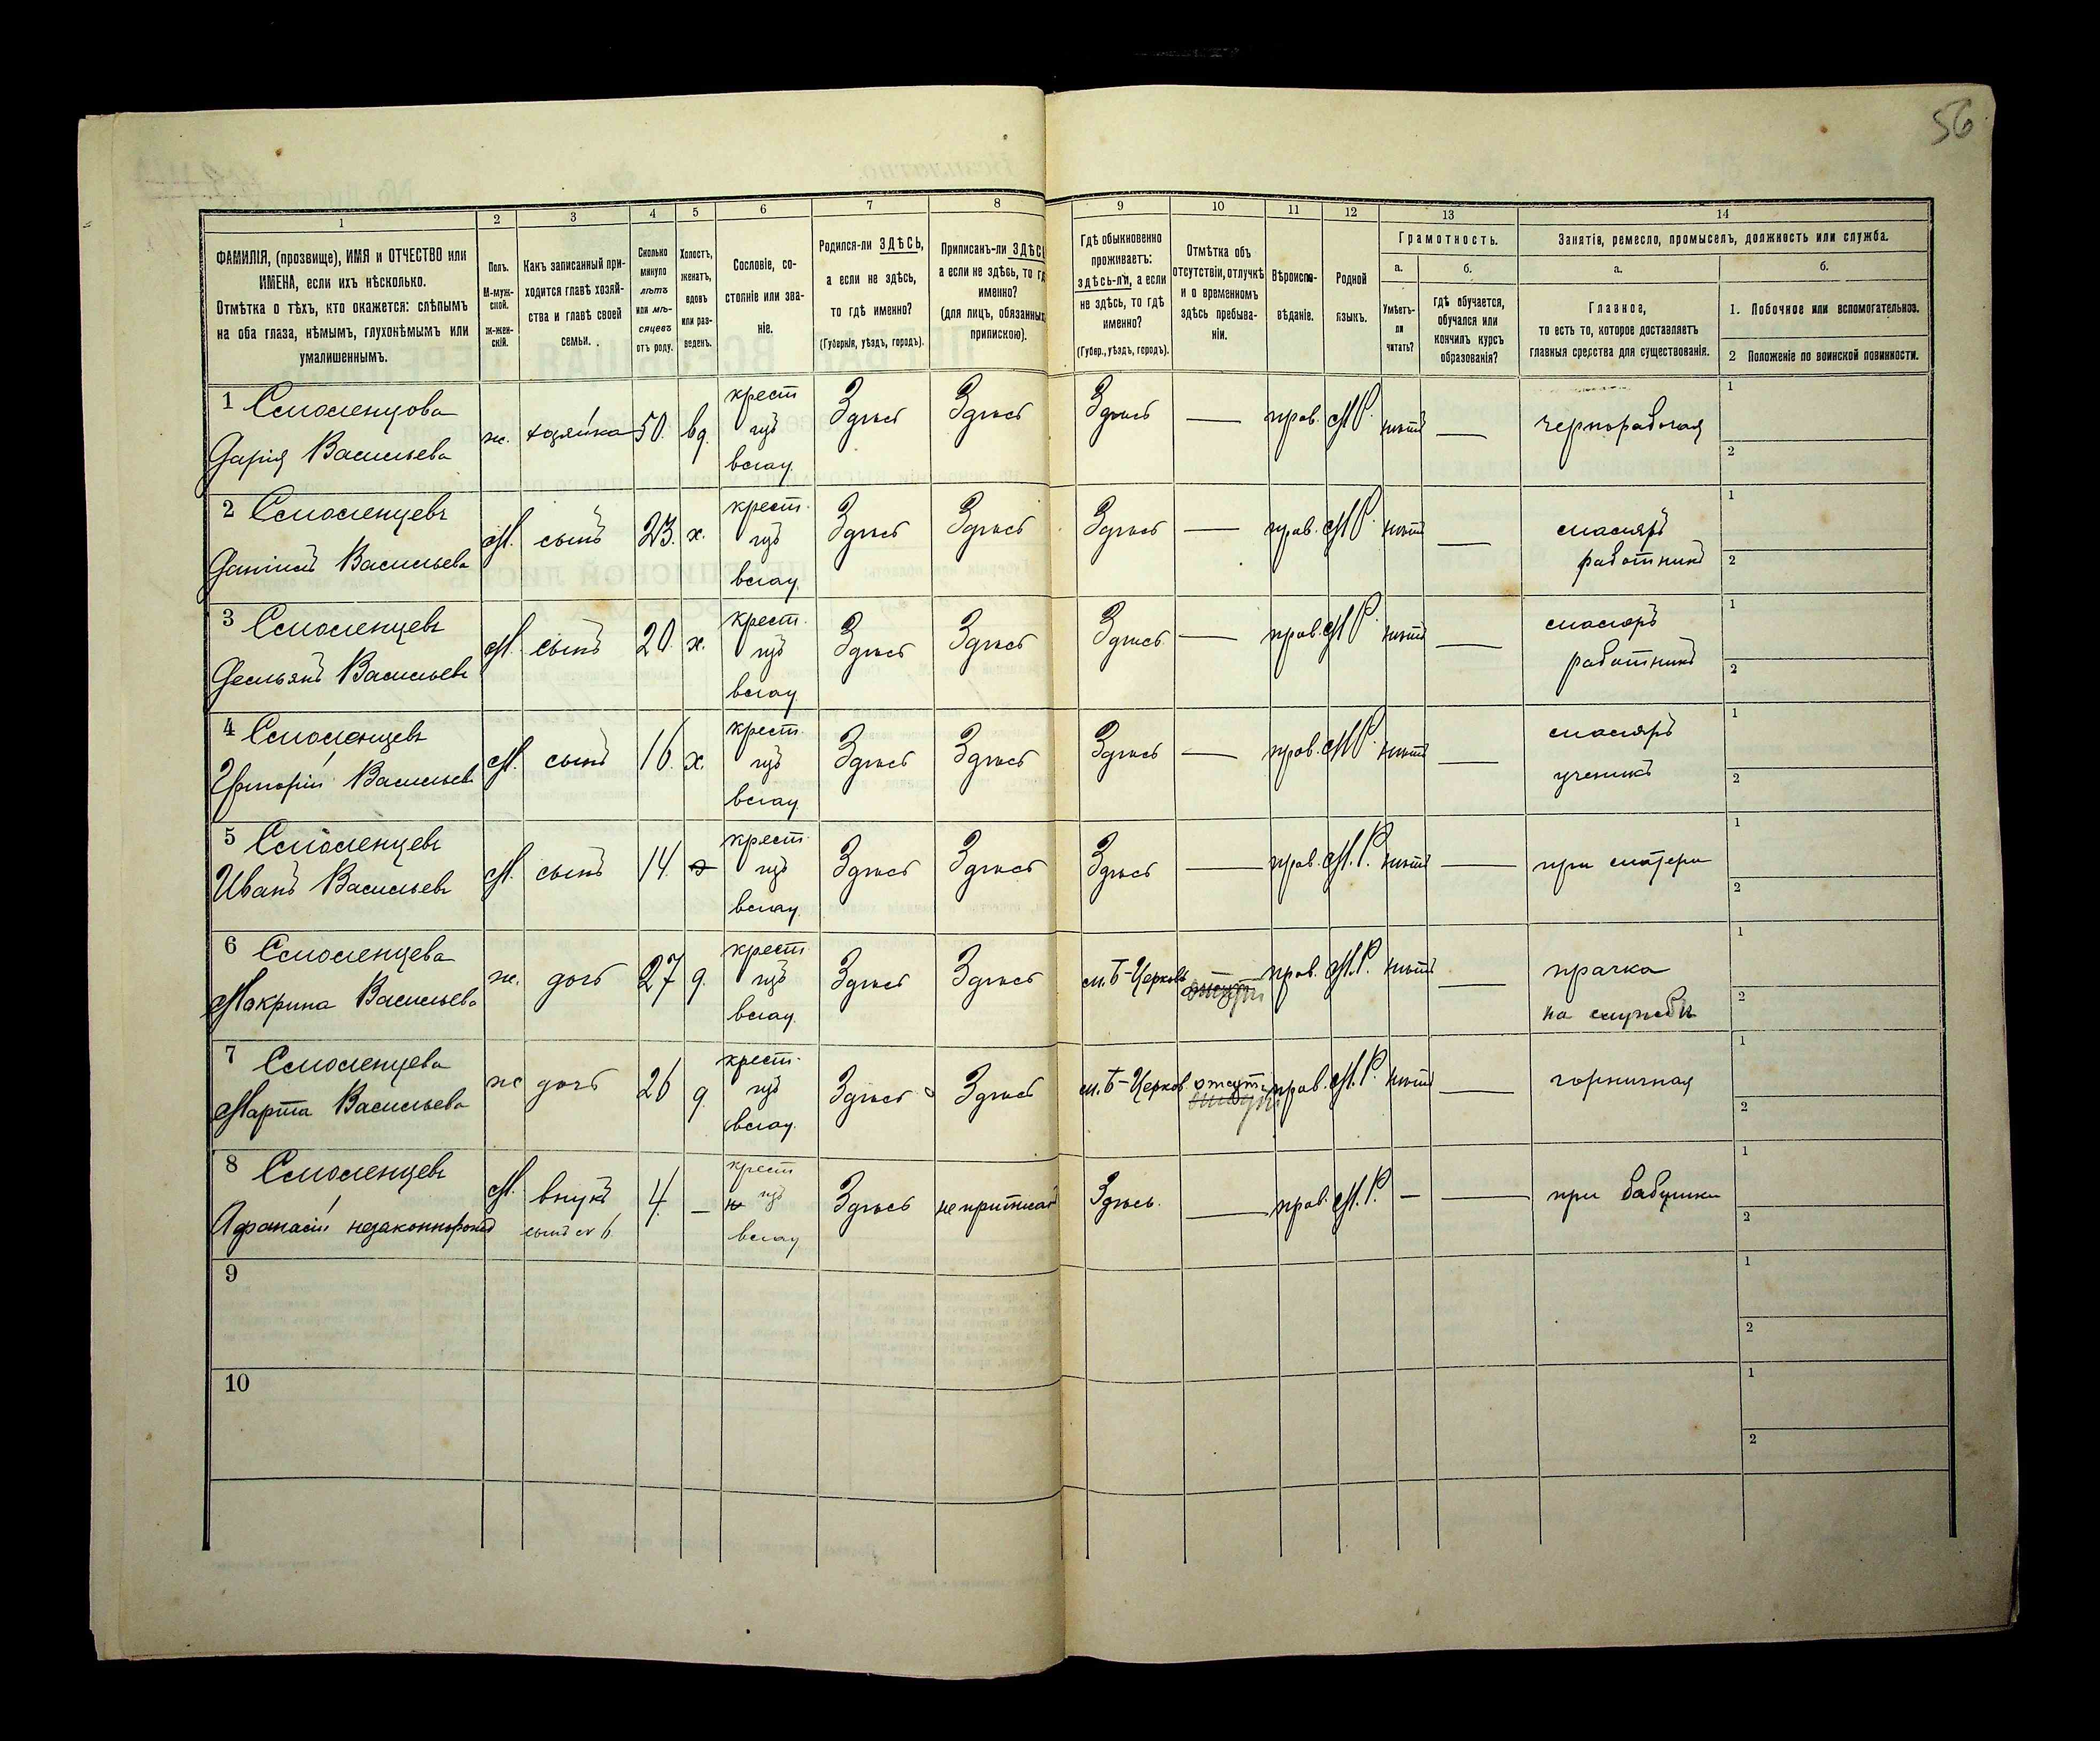 56
1 2 3 4 5 6 7 8 9 10 11 12 13 14
ФАМИЛІЯ, (прозвище), ИМЯ и ОТЧЕСТВО или
ИМЕНА, если ихъ нѣсколько.
Отмѣтка о тѣхъ, кто окажется: слѣпымъ
на оба глаза, нѣмымъ, глухонѣмымъ или
умалишеннымъ.
Полъ.
М-муж-
ской.
ж-жен-
скій.
Какъ записанный при-
ходится главѣ хозяй-
ства и главѣ своей
семьи.
Сколько
минуло
лѣтъ
или мѣ-
сяцевъ
отъ роду.
Холостъ,
женатъ,
вдовъ
или раз-
веденъ.
Сословіе, со-
стояніе или зва-
ніе.
Родился-ли ЗДѢСЬ,
а если не здѣсь,
то гдѣ именно?
(Губернія, уѣздъ, городъ).
Приписанъ-ли ЗДѢСЬ
а если не здѣсь, то гд
именно?
(для лицъ, обязанных
припискою).
Гдѣ обыкновенно
проживаетъ:
здѣсь-ли, а если
не здѣсь, то гдѣ
именно?
(Губер., уѣздъ, городъ).
Отмѣтка объ
отсутствіи, отлучкѣ
и о временномъ
здѣсь пребыва-
ніи.
Вѣроиспо-
вѣданіе.
Родной
языкъ.
Грамотность.
а.
Умѣетъ-
ли
читать?
б.
гдѣ обучается,
обучался или
кончилъ курсъ
образованія?
Занятіе, ремесло, промыселъ, должность или служба.
а.
Главное,
то есть то, которое доставляетъ
главныя средства для существованія.
б.
1. Побочное или вспомогательное.
2 Положеніе по воинской повинности.
1 Смоленцова ж. хозяйка 50. вд. крест. изъ влад. Здѣсь Здѣсь Здѣсь — прав. М.Р. нѣтъ — чернорабочая 1
Дарія Васильева 2
2 Смоленцевъ М. сынъ 23. х. крест. изъ влад. Здѣсь Здѣсь Здѣсь — прав. М.Р. нѣтъ — маляръ 1
Даніилъ Васильевъ работникъ 2
3 Смоленцевъ М. сынъ 20. х. крест. изъ влад. Здѣсь Здѣсь Здѣсь — прав. М.Р. нѣтъ — маляръ 1
Демьянъ Васильевъ работникъ 2
4 Смоленцевъ М. сынъ 16. х. крест. изъ влад. Здѣсь Здѣсь Здѣсь — прав. М.Р. нѣтъ — маляръ 1
Григорій Васильевъ ученикъ 2
5 Смоленцевъ М. сынъ 14. х крест. изъ влад. Здѣсь Здѣсь Здѣсь — прав. М.Р. нѣтъ — при матери 1
Иванъ Васильевъ 2
6 Смоленцева ж. дочь 27 д. крест. изъ влад. Здѣсь Здѣсь м. Б-Церковь прав. М.Р. нѣтъ — прачка 1
Макрина Васильева на службѣ 2
7 Смоленцева ж дочь 26 д. крест. изъ влад. Здѣсь Здѣсь м. Б-Церков. отсут. прав. М.Р. нѣтъ — горничная 1
Марта Васильева 2
8 Смоленцевъ М. внукъ 4 — крест изъ влад. Здѣсь не приписан Здѣсь. — прав. М.Р. — — при бабушкѣ 1
Афанасій незаконнорожд сынъ 6 2
9 1
2
10 1
2